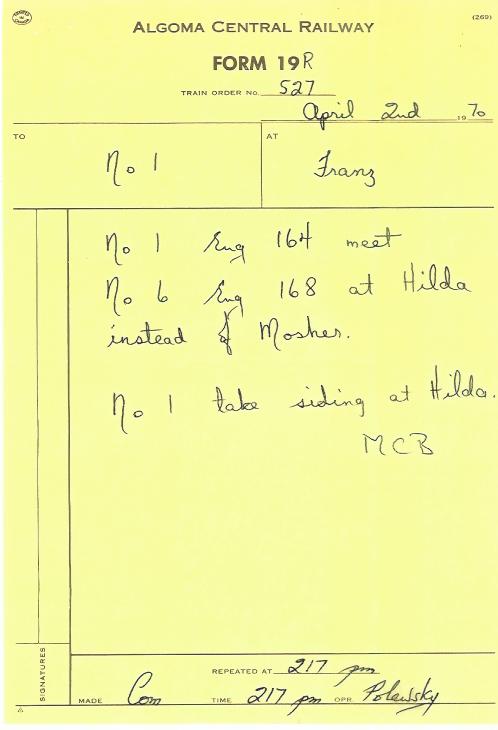 (269)
ALGOMA CENTRAL RAILWAY
FORM 19R
TRAIN ORDER No. 527
April 2nd 1970
TO No 1 AT Franz
No 1 Eng 164 meet
No 6 Eng 168 at Hilda
instead of Mosher.
No 1 take siding at Hilda.
MCB
SIGNATURES
REPEATED AT 217 pm
MADE Com TIME 217 pm OPR. Polewsky